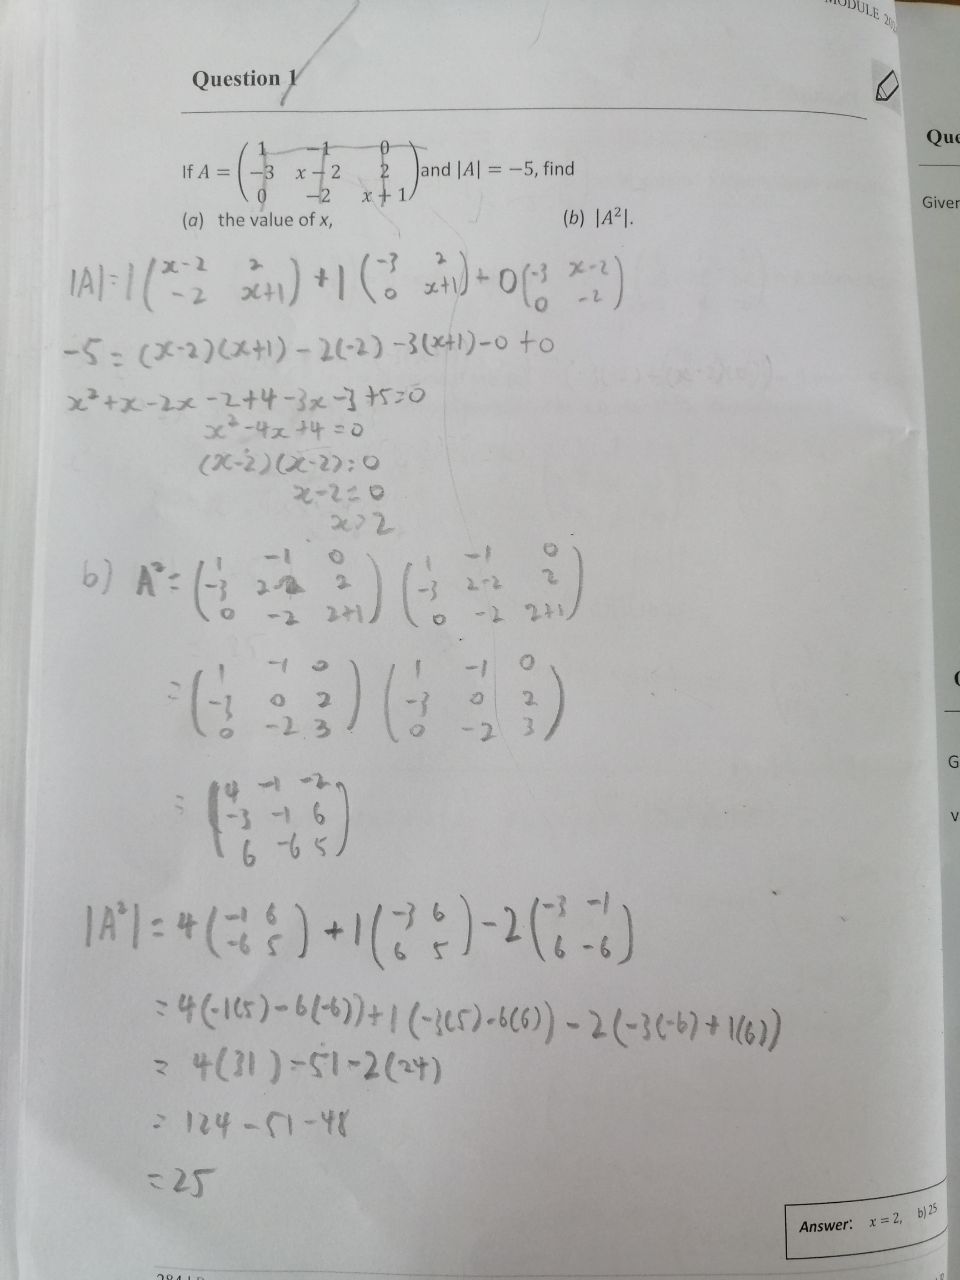 MODULE 20
Question 1
If A = ( 1 -1 0
-3 x - 2 2
0 -2 x + 1 ) and |A| = -5, find
(a) the value of x, (b) |A²|.
|A| = 1 ( x-2 2
-2 x+1 ) + 1 ( -3 2
0 x+1 ) + 0 ( -3 x-2
0 -2 )
-5 = (x-2)(x+1) - 2(-2) - 3(x+1) - 0 + 0
x² + x - 2x - 2 + 4 - 3x - 3 + 5 = 0
x² - 4x + 4 = 0
(x-2)(x-2) = 0
x - 2 = 0
x = 2
b) A² = ( 1 -1 0
-3 2-2 2
0 -2 2+1 ) ( 1 -1 0
-3 2-2 2
0 -2 2+1 )
= ( 1 -1 0
-3 0 2
0 -2 3 ) ( 1 -1 0
-3 0 2
0 -2 3 )
= ( 4 -1 -2
-3 -1 6
6 -6 5 )
|A²| = 4 ( -1 6
-6 5 ) + 1 ( -3 6
6 5 ) - 2 ( -3 -1
6 -6 )
= 4(-1(5) - 6(-6)) + 1(-3(5) - 6(6)) - 2(-3(-6) + 1(6))
= 4(31) - 51 - 2(24)
= 124 - 51 - 48
= 25
Answer: x = 2, b) 25
Que
Given
G
v